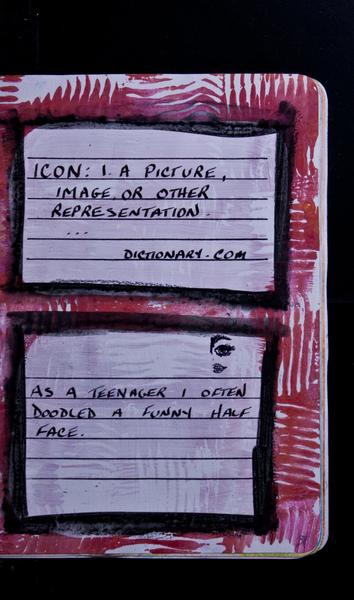 ICON: 1. A PICTURE,
IMAGE, OR OTHER
REPRESENTATION.
...
DICTIONARY.COM
AS A TEENAGER I OFTEN
DOODLED A FUNNY HALF
FACE.